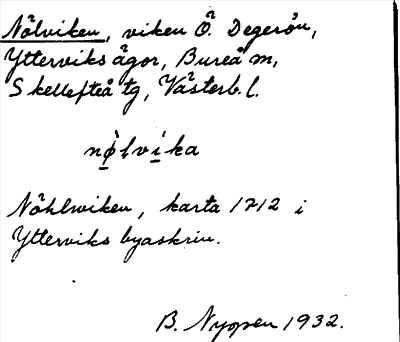 Nölviken, viken Ö. Degerön,
Ytterviks ägor, Bureå m,
Skellefteå tg, Västerb. l.
nø̀lvika
Nöhlwiken, karta 1712 i
Ytterviks byaskrin.
B. Nyopen 1932.